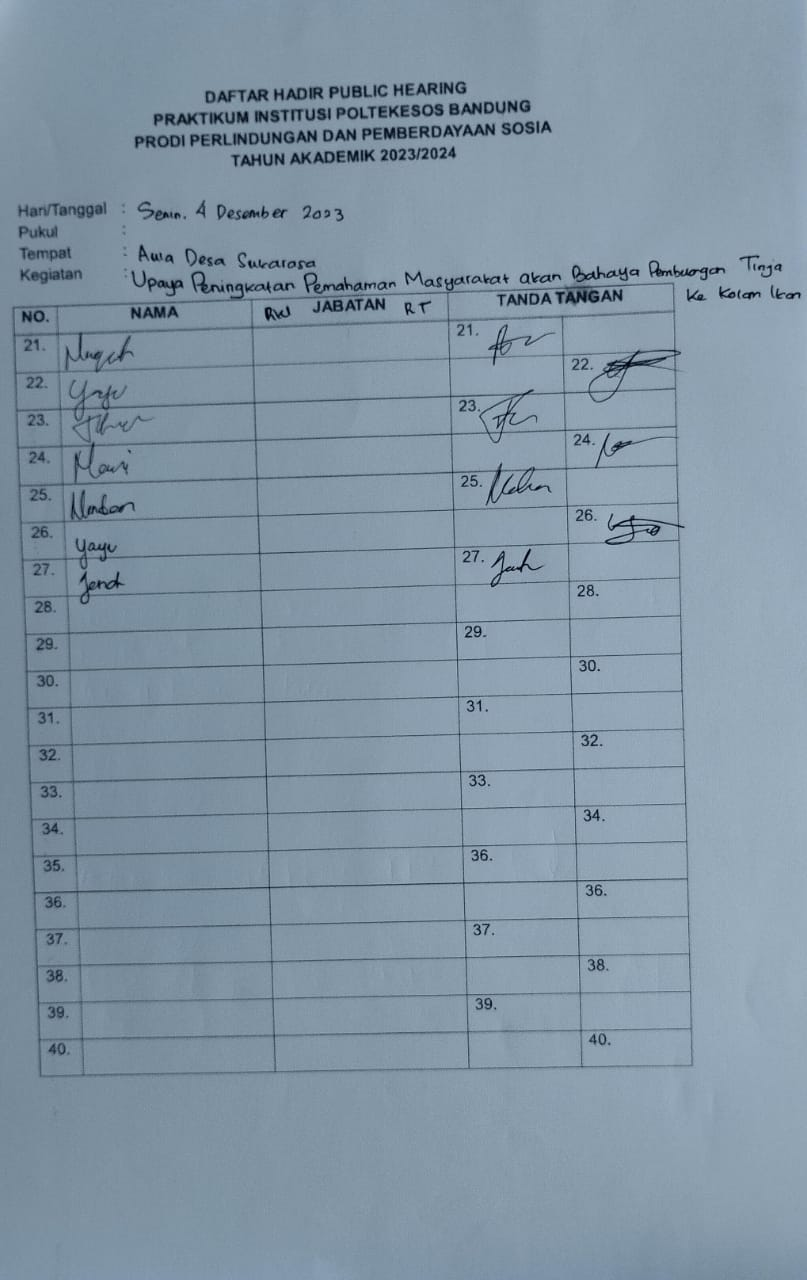 DAFTAR HADIR PUBLIC HEARING
PRAKTIKUM INSTITUSI POLTEKESOS BANDUNG
PRODI PERLINDUNGAN DAN PEMBERDAYAAN SOSIA
TAHUN AKADEMIK 2023/2024
Hari/Tanggal : Senin. 4 Desember 2023
Pukul :
Tempat : Aula Desa Sukarasa
Kegiatan : Upaya Peningkatan Pemahaman Masyarakat akan Bahaya Pembuangan Tinja
Ke Kolam Ikan
NO. NAMA RW JABATAN RT TANDA TANGAN
21. 21.
22. Yayu 22.
23. 23.
24. 24.
25. 25.
26. Yayu 26.
27. 27.
28. 28.
29. 29.
30. 30.
31. 31.
32. 32.
33. 33.
34. 34.
35. 36.
36. 36.
37. 37.
38. 38.
39. 39.
40. 40.